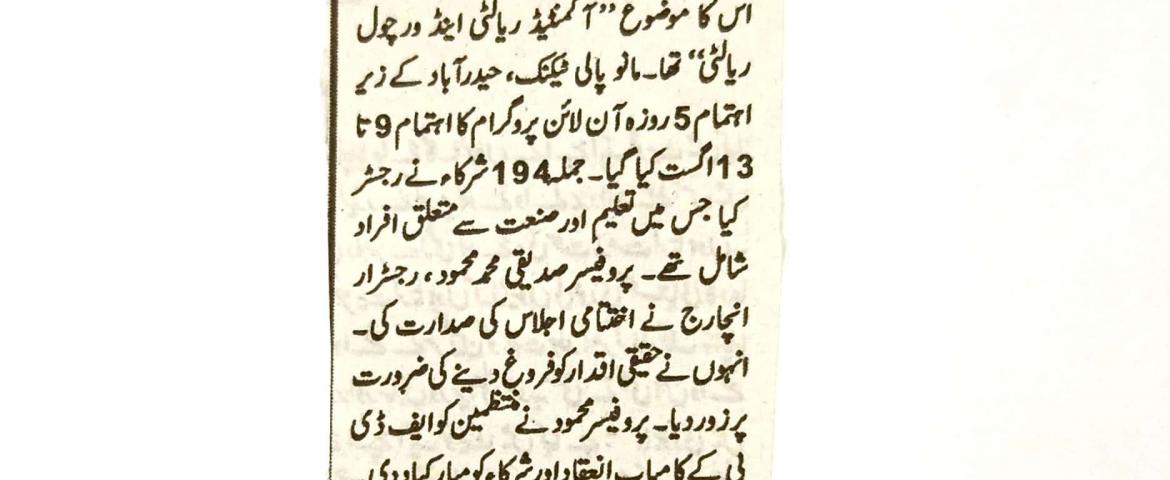 اس کا موضوع ’’آگمنٹیڈ ریالٹی اینڈ ورچول
ریالٹی‘‘ تھا۔ مانو پالی ٹیکنک، حیدرآباد کے زیر
اہتمام 5 روزہ آن لائن پروگرام کا اہتمام 9 تا
13 اگست کیا گیا۔ جملہ 194 شرکاء نے رجسٹر
کیا جس میں تعلیم اور صنعت سے متعلق افراد
شامل تھے۔ پروفیسر صدیقی محمد محمود، رجسٹرار
انچارج نے اختتامی اجلاس کی صدارت کی۔
انہوں نے حقیقی اقدار کو فروغ دینے کی ضرورت
پر زور دیا۔ پروفیسر محمود نے منتظمین کو ایف ڈی
پی کے کامیاب انعقاد اور شرکاء کو مبارکباد دی۔